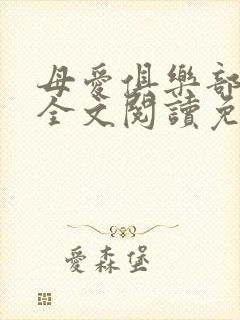 母愛俱樂部
全文閱讀免
愛森堡